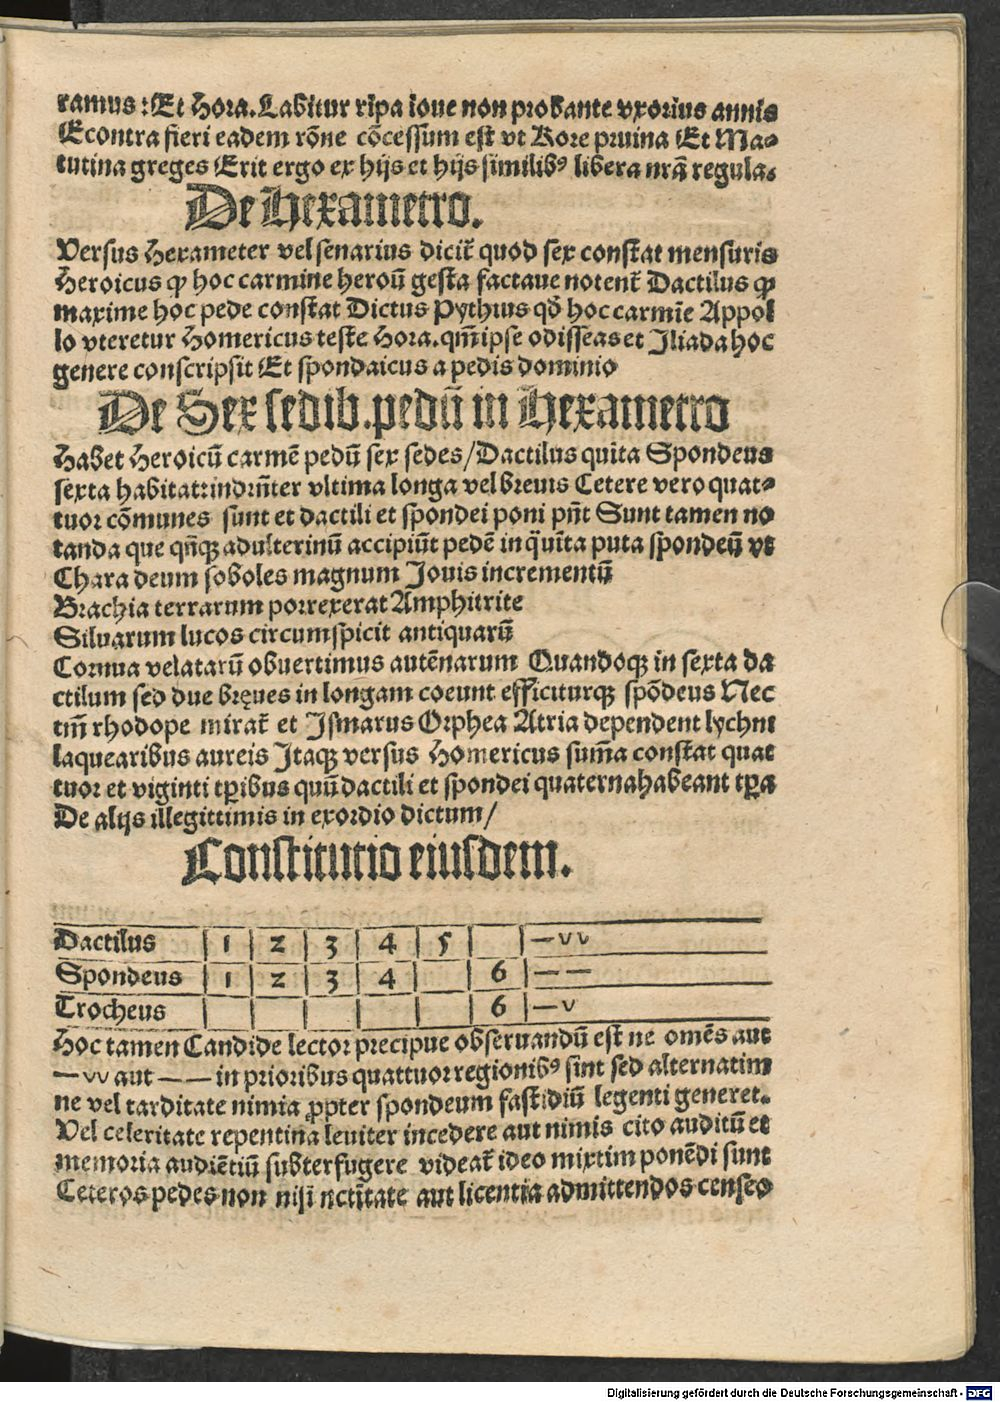 ramus : Et Hora. Labitur ripa ioue non probante vxorius annis
Econtra fieri eadem rōne cōcessum est vt Rore pruina Et Ma⸗
tutina greges Erit ergo ex hijs et hijs similibꝰ libera nrā regula.
De Hexametro.
Versus Hexameter vel senarius dicit̄ quod sex constat mensuris
Heroicus ꝙ hoc carmine heroū gesta factaue notent̄ Dactilus ꝙ
maxime hoc pede constat Dictus Pythius qd̄ hoc carmīe Appol
lo vteretur Homericus teste Hora. qm̄ ipse odisseas et Iliada hoc
genere conscripsit Et spondaicus a pedis dominio
De Sex sedib. pedū in Hexametro
Habet Heroicū carmē pedū sex sedes / Dactilus quīta Spondeus
sexta habitat: indrn̄ter vltima longa vel breuis Cetere vero quat⸗
tuor cōmunes sunt et dactili et spondei poni pn̄t Sunt tamen no
tanda que qn̄qꝫ adulterinū accipiūt pedē in quīta puta spondeū vt
Chara deum soboles magnum Iouis incrementū
Brachia terrarum porrexerat Amphitrite
Siluarum lucos circumspicit antiquarū
Cornua velatarū obuertimus autēnarum Quandoqꝫ in sexta da
ctilum sed due breues in longam coeunt efficiturqꝫ spōdeus Nec
tm̄ rhodope mirat̄ et Ismarus Orphea Atria dependent lychni
laquearibus aureis Itaqꝫ versus Homericus sum̄a constat quat
tuor et viginti tp̄ibus quū dactili et spondei quaterna habeant tp̄a
De alijs illegittimis in exordio dictum /
Constitutio eiusdem.
Dactilus | 1 | 2 | 3 | 4 | 5 | | — v v
Spondeus | 1 | 2 | 3 | 4 | | 6 | — —
Trocheus | | | | | | 6 | — v
Hoc tamen Candide lector precipue obseruandū est ne omēs aut
— vv aut — — in prioribus quattuor regionibꝰ sint sed alternatim
ne vel tarditate nimia ꝓpter spondeum fastidiū legenti generet.
Vel celeritate repentina leuiter incedere aut nimis cito auditū et
memoria audiētiū subterfugere videat̄ ideo mixtim ponēdi sunt
Ceteros pedes non nisi nctītate aut licentia admittendos censeo
Digitalisierung gefördert durch die Deutsche Forschungsgemeinschaft - DFG